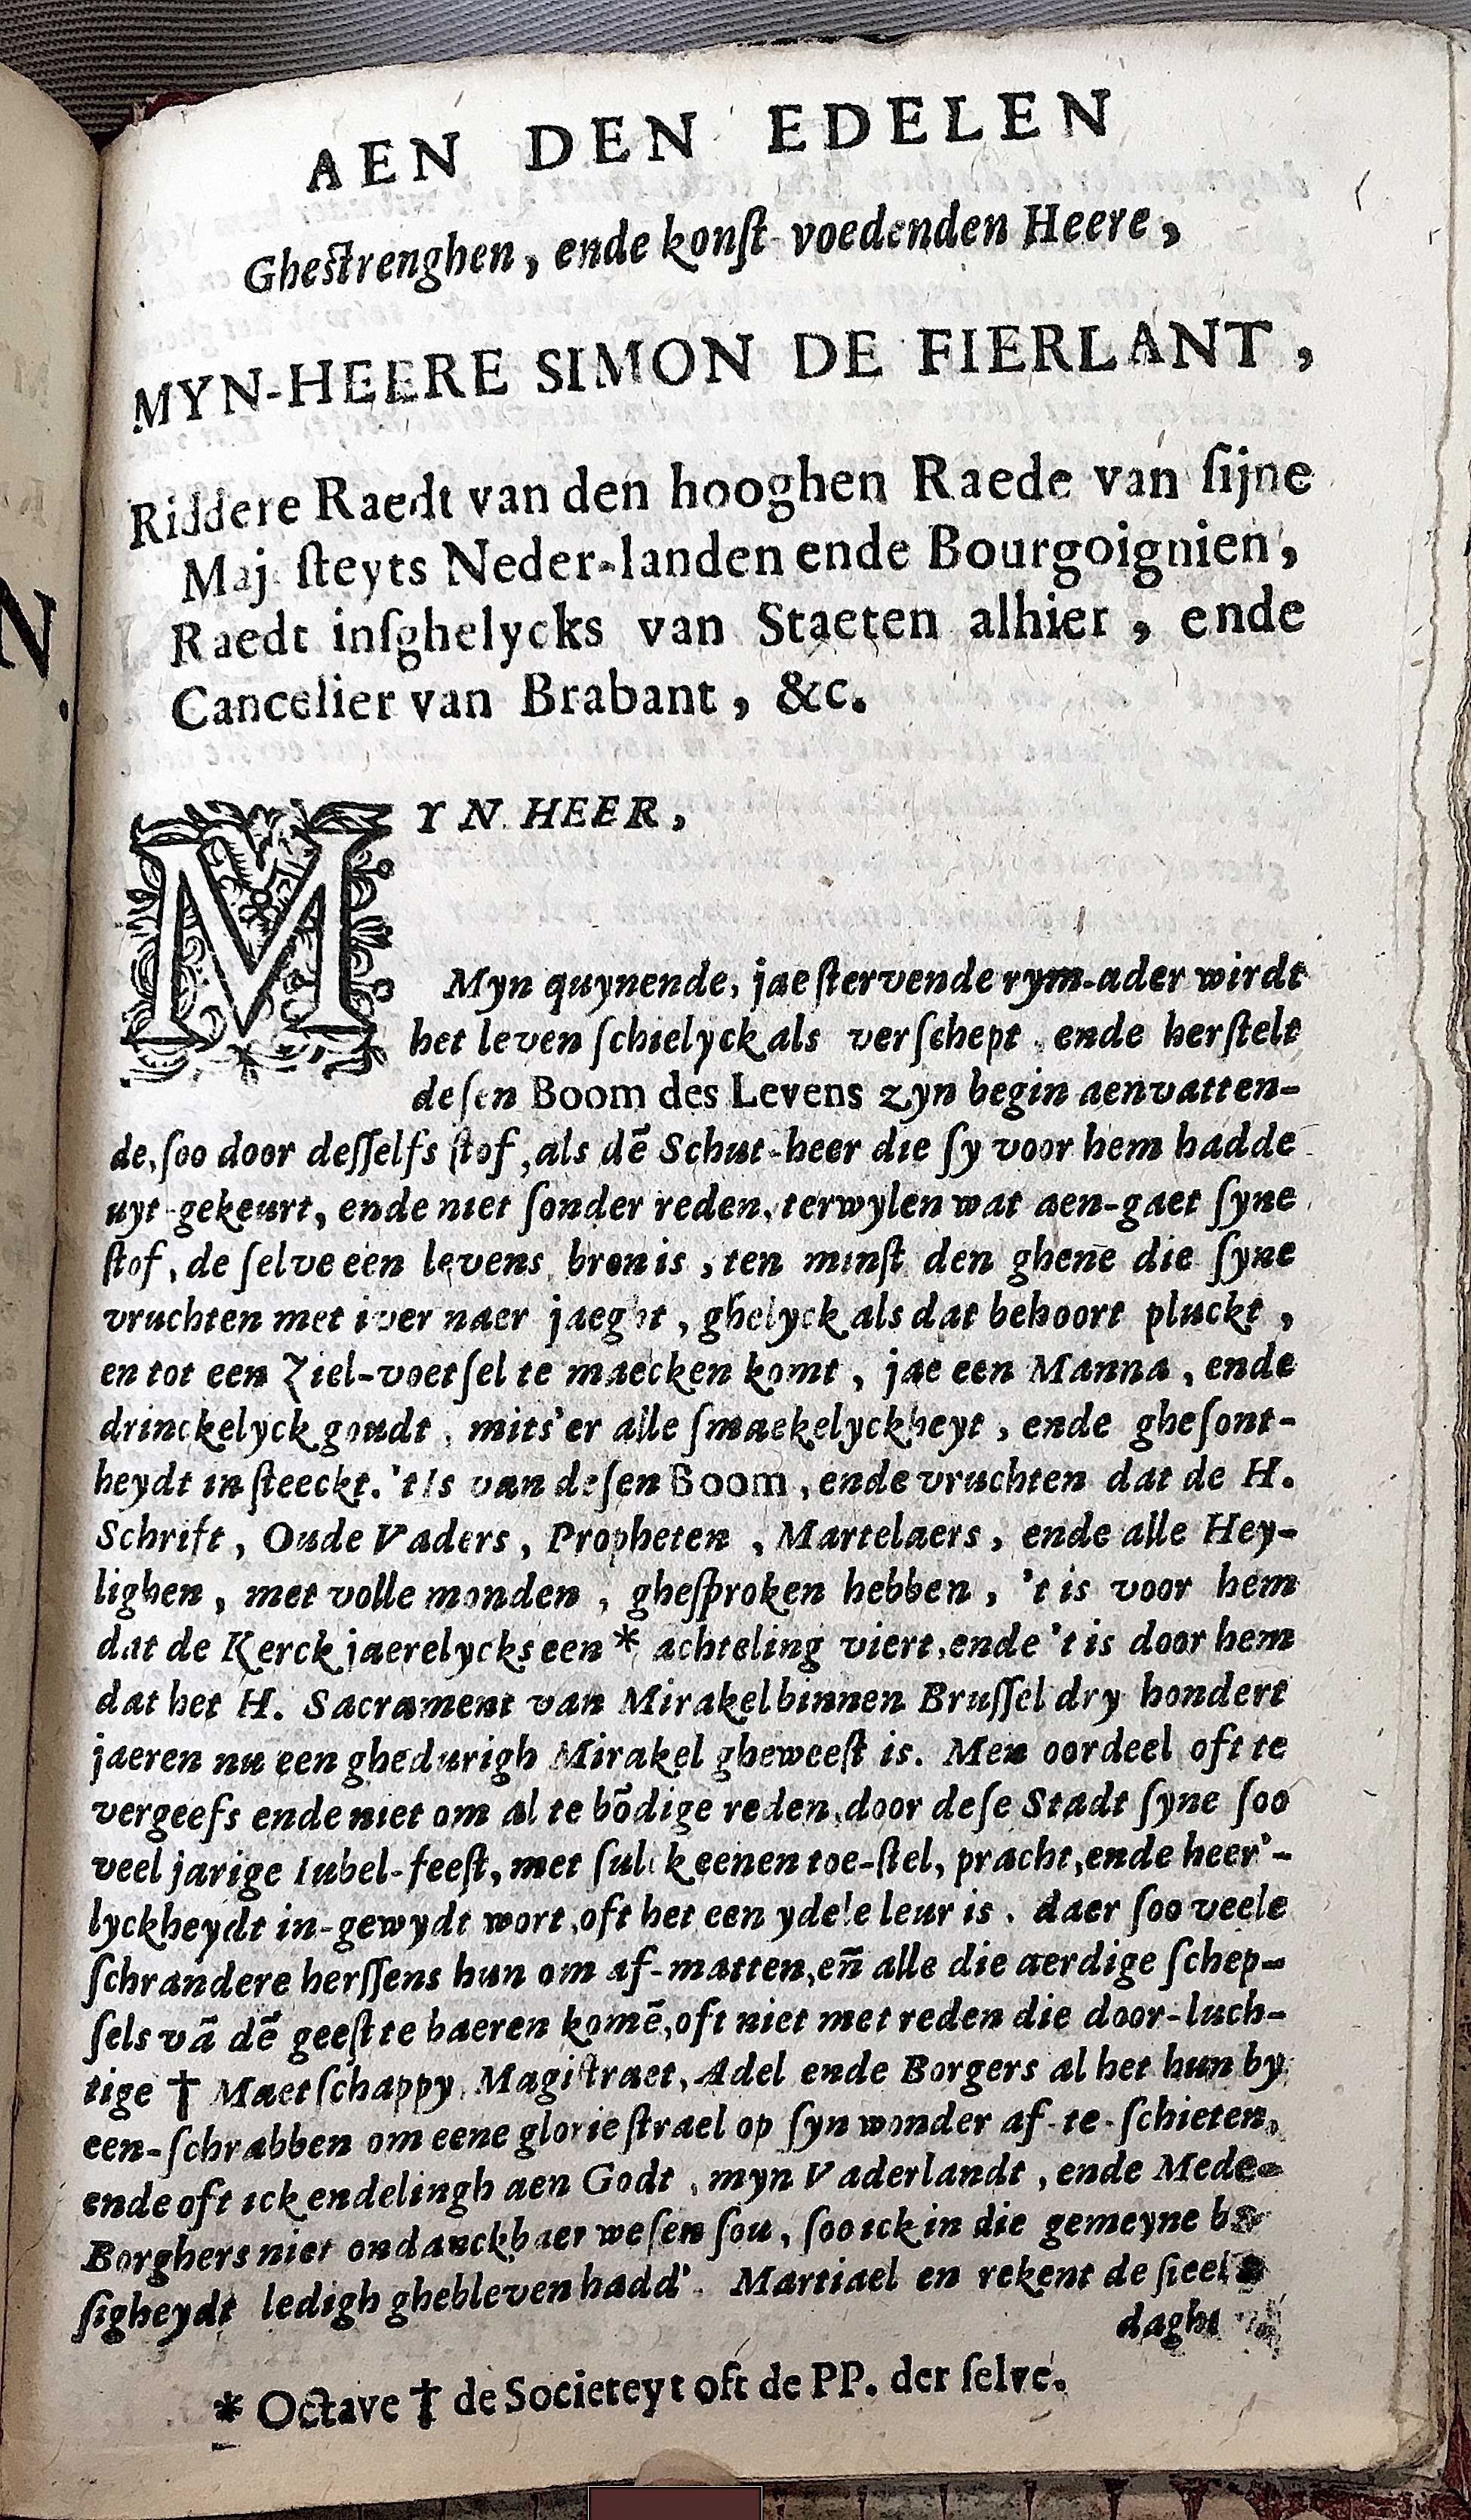 AEN DEN EDELEN
Gheſtrenghen, ende konſt-voedenden Heere,
MYN-HEERE SIMON DE FIERLANT,
Riddere Raedt van den hooghen Raede van ſijne
Maj ſteyts Neder-landen ende Bourgoignien,
Raedt inſghelycks van Staeten alhier, ende
Cancelier van Brabant, &c.
MYN HEER,
Myn quynende, jae ſtervende rym-ader wirdt
het leven ſchielyck als verſchept, ende herſtelt
deſen Boom des Levens zyn begin aenvatten-
de, ſoo door deſſelfs ſtof, als dẽ Schut-heer die ſy voor hem hadde
uyt-gekeurt, ende niet ſonder reden, terwylen wat aen-gaet ſyne
ſtof, de ſelve een levens bron is, ten minſt den ghene die ſyne
vruchten met iver naer jaeght, ghelyck als dat behoort pluckt,
en tot een Ziel-voetſel te maecken komt, jae een Manna, ende
drinckelyck goudt, mits'er alle ſmaekelyckheyt, ende gheſont-
heydt in ſteeckt. 't Is van deſen Boom, ende vruchten dat de H.
Schrift, Oude Vaders, Propheten, Martelaers, ende alle Hey-
lighen, met volle monden, gheſproken hebben, 't is voor hem
dat de Kerck jaerelycks een * achteling viert, ende 't is door hem
dat het H. Sacrament van Mirakel binnen Bruſſel dry hondert
jaeren nu een ghedurigh Mirakel gheweeſt is. Men oordeel oft te
vergeefs ende niet om al te bõdige reden, door deſe Stadt ſyne ſoo
veel jarige Iubel-feeſt, met ſulck eenen toe-ſtel, pracht, ende heer'-
lyckheydt in-gewydt wort, oft het een ydele leur is, daer ſoo veele
ſchrandere herſſens hun om af-matten, eñ alle die aerdige ſchep-
ſels vã dẽ geeſt te baeren komẽ, oft niet met reden die door-luch-
tige † Maetſchappy, Magiſtraet, Adel ende Borgers al het hun by
een-ſchrabben om eene glorie ſtrael op ſyn wonder af-te-ſchieten,
ende oft ick endelingh aen Godt, myn Vaderlandt, ende Mede-
Borghers niet ondanckbaer weſen ſou, ſoo ick in die gemeyne be-
ſigheydt ledigh ghebleven hadd'. Martiael en rekent de ſieel
daght
* Octave † de Societeyt oft de PP. der ſelve.